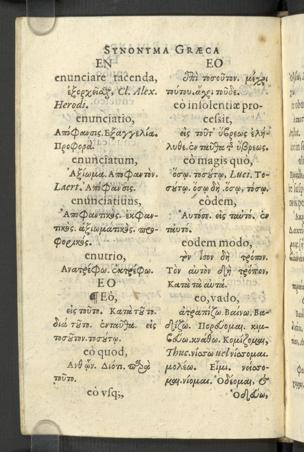 SYNONYMA GRÆCA
EN
enunciare tacenda,
Cl. Alex.
Herodi.
enunciatio,
Ἀπόφανσις. Ἐξαγγελία.
Προφορά.
enunciatum,
Ἀξίωμα. Ἀποφαντὸν.
Laert. Ἀπόφανσις.
enunciatiuus,
Ἀποφαντικὸς. ἐκφαν-
τικὸς. ἀξιωματικὸς. προ-
φορικὸς.
enutrio,
Ἀνατρέφω. ἐκτρέφω.
EO
¶Eò,
εἰς τοῦτο. Κατὰ τῦτο.
διὰ τῦτο. ἐνταῦθα. εἰς
τοσοῦτον. τοσούτῳ.
eò quod,
Ἀνθ' ὧν. Διότι. παρὰ
τοῦτο.
eò vsq;,
EO
ἐπὶ τοσοῦτον. μέχρι
τούτου. ἄχρι τοῦδε.
eò insolentiæ pro-
cessit,
εἰς τοῦτ' ὕβρεως ἐλή-
λυθε. ὕβρεως.
eò magis quò,
ὅσῳ. τοσούτῳ. Luci. Το-
σούτῳ. ὅσῳ δὴ ὅσῳ, τόσῳ.
eòdem,
Αὐτόσε. εἰς ταὐτό. ἐν
ταὐτῷ.
eodem modo,
τὸν ἴσον δὴ τρόπον.
Τὸν αὐτὸν δὴ τρόπον,
Κατὰ τὰ αὐτά.
eo, vado,
ἀτραπίζω. Βαίνω. Βα-
δίζω. Πορεύομαι.
Κομίζομαι,
Thuc. νίσσω vel νίσσομαι.
μολέω. Εἶμι. νείσσο-
μαι. νίομαι. Ὁδεύομαι. &
Ὁδεύω,